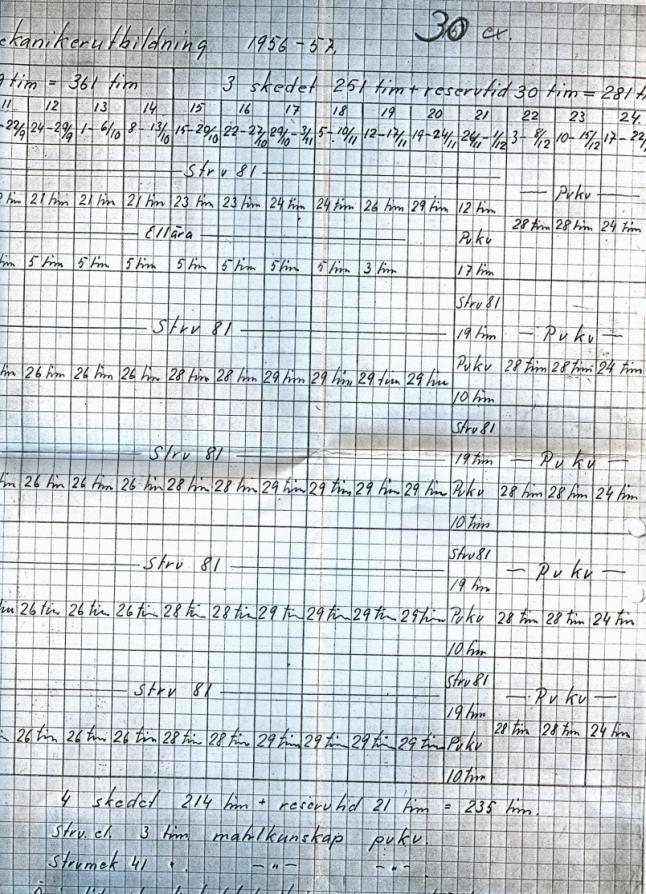 30 ex.
ekanikerutbildning 1956-57.
tim = 361 tim 3 skedet 251 tim + reservtid 30 tim = 281 t
11 12 13 14 15 16 17 18 19 20 21 22 23 24
-22/9 24-29/9 1-6/10 8-13/10 15-20/10 22-27/10 29/10-3/11 5-10/11 12-17/11 19-24/11 26/11-1/12 3-8/12 10-15/12 17-22
Strv 81
Pvkv
tim 21 tim 21 tim 21 tim 23 tim 23 tim 24 tim 24 tim 26 tim 29 tim 12 tim
28 tim 28 tim 24 tim
Ellära Pvkv
im 5 tim 5 tim 5 tim 5 tim 5 tim 5 tim 5 tim 3 tim 17 tim
Strv 81
Strv 81 19 tim Pvkv
im 26 tim 26 tim 26 tim 28 tim 28 tim 29 tim 29 tim 29 tim 29 tim Pvkv 28 tim 28 tim 24 tim
10 tim
Strv 81
Strv 81 19 tim Pvkv
im 26 tim 26 tim 26 tim 28 tim 28 tim 29 tim 29 tim 29 tim 29 tim Pvkv 28 tim 28 tim 24 tim
10 tim
Strv 81
Strv 81 Pvkv
19 tim
im 26 tim 26 tim 26 tim 28 tim 28 tim 29 tim 29 tim 29 tim 29 tim Pvkv 28 tim 28 tim 24 tim
10 tim
Strv 81
Strv 81 Pvkv
19 tim
26 tim 26 tim 26 tim 28 tim 28 tim 29 tim 29 tim 29 tim 29 tim Pvkv 28 tim 28 tim 24 tim
10 tim
4 skedet 214 tim + reservtid 21 tim = 235 tim.
Strv. el. 3 tim pvkv.
Strvmek 41 " —"— —"—